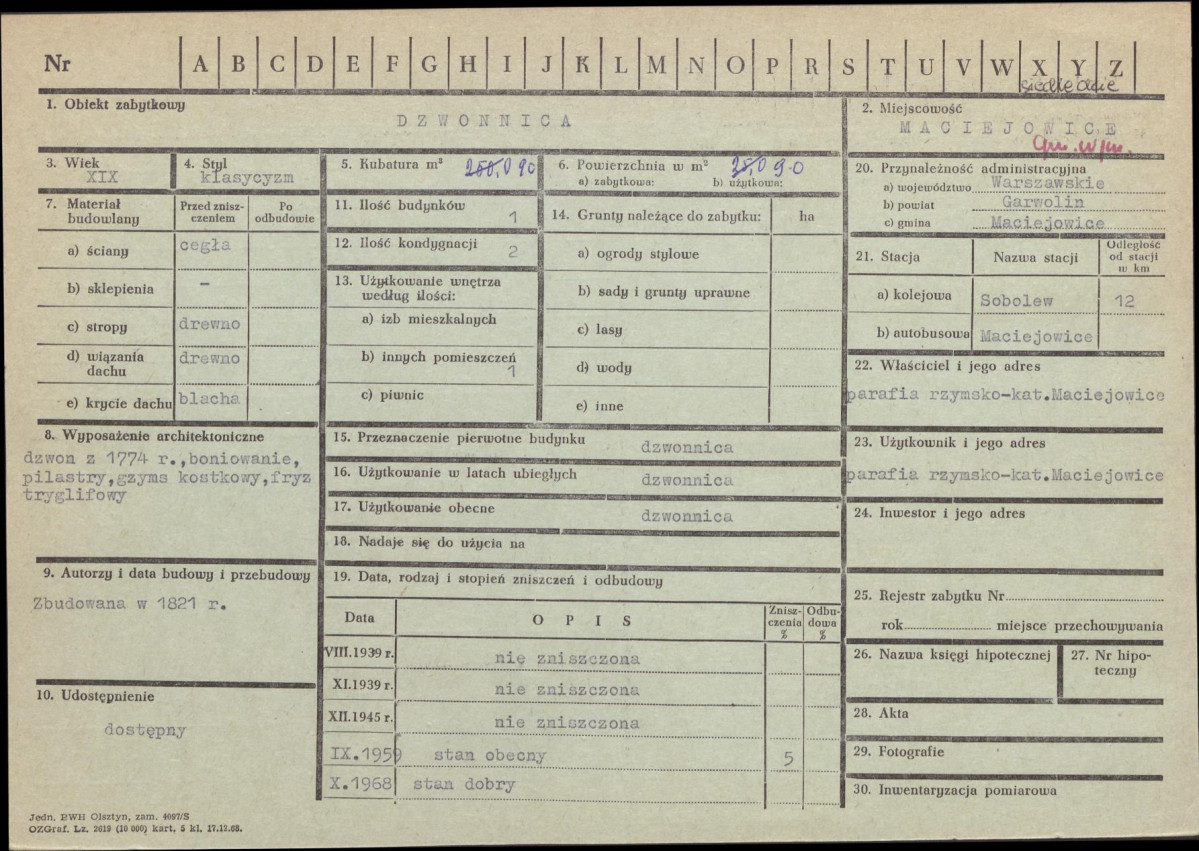 Nr A B C D E F G H I J K L M N O P R S T U V W X Y Z
siedleckie
1. Obiekt zabytkowy
DZWONNICA
2. Miejscowość
MACIEJOWICE
3. Wiek
XIX
4. Styl
klasycyzm
5. Kubatura m³ 90
6. Powierzchnia w m² 9.0
a) zabytkowa: b) użytkowa:
7. Materiał budowlany
Przed zniszczeniem
Po odbudowie
a) ściany cegła
b) sklepienia –
c) stropy drewno
d) wiązania dachu drewno
e) krycie dachu blacha
8. Wyposażenie architektoniczne
dzwon z 1774 r.,boniowanie,
pilastry,gzyms kostkowy,fryz
tryglifowy
9. Autorzy i data budowy i przebudowy
Zbudowana w 1821 r.
10. Udostępnienie
dostępny
11. Ilość budynków
1
12. Ilość kondygnacji
2
13. Użytkowanie wnętrza
według ilości:
a) izb mieszkalnych
b) innych pomieszczeń
1
c) piwnic
14. Grunty należące do zabytku: ha
a) ogrody stylowe
b) sady i grunty uprawne
c) lasy
d) wody
e) inne
15. Przeznaczenie pierwotne budynku dzwonnica
16. Użytkowanie w latach ubiegłych dzwonnica
17. Użytkowanie obecne dzwonnica
18. Nadaje się do użycia na
19. Data, rodzaj i stopień zniszczeń i odbudowy
Data OPIS Zniszczenia % Odbudowa %
VIII.1939 r. nie zniszczona
XI.1939 r. nie zniszczona
XII.1945 r. nie zniszczona
IX.1959 stan obecny 5
X.1968 stan dobry
20. Przynależność administracyjna
a) województwo Warszawskie
b) powiat Garwolin
c) gmina Maciejowice
21. Stacja Nazwa stacji Odległość od stacji w km
a) kolejowa Sobolew 12
b) autobusowa Maciejowice
22. Właściciel i jego adres
parafia rzymsko-kat.Maciejowice
23. Użytkownik i jego adres
parafia rzymsko-kat.Maciejowice
24. Inwestor i jego adres
25. Rejestr zabytku Nr
rok miejsce przechowywania
26. Nazwa księgi hipotecznej
27. Nr hipoteczny
28. Akta
29. Fotografie
30. Inwentaryzacja pomiarowa
Jedn. BWH Olsztyn, zam. 4097/S
OZGraf. Lz. 2619 (10 000) kart. 5 kl. 17.12.68.